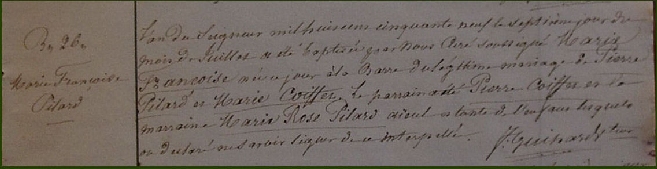 Bn 26e
Marie Françoise
Pilard
L'an du Seigneur mil huit cent cinquante neuf le septième jour du
mois de Juillet a été baptisée par Nous Curé soussigné Marie
Francoise née ce jour à la Barre du légitime mariage de Pierre
Pilard et Marie Coiffer, le parrain a été Pierre Coiffer et la
marraine Marie Rose Pilard aieul et tante de l'enfant lesquels
ont déclaré ne savoir signer de ce interpellé. J. Guinard